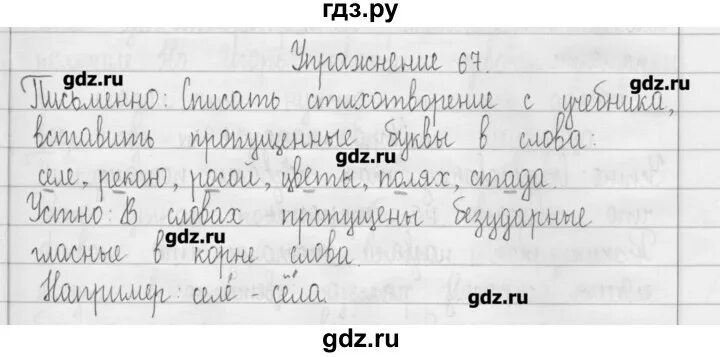 гдз.ру
Упражнение 67.
gdz.ru
gdz.ru
Письменно: Списать стихотворение с учебника,
вставить пропущенные буквы в слова:
gdz.ru
селе, рекою, росой, цветы, полях, стада.
Устно: В словах пропущены безударные
gdz.ru
гласные в корне слова.
Например: селе - сёла.
gdz.ru
gdz.ru